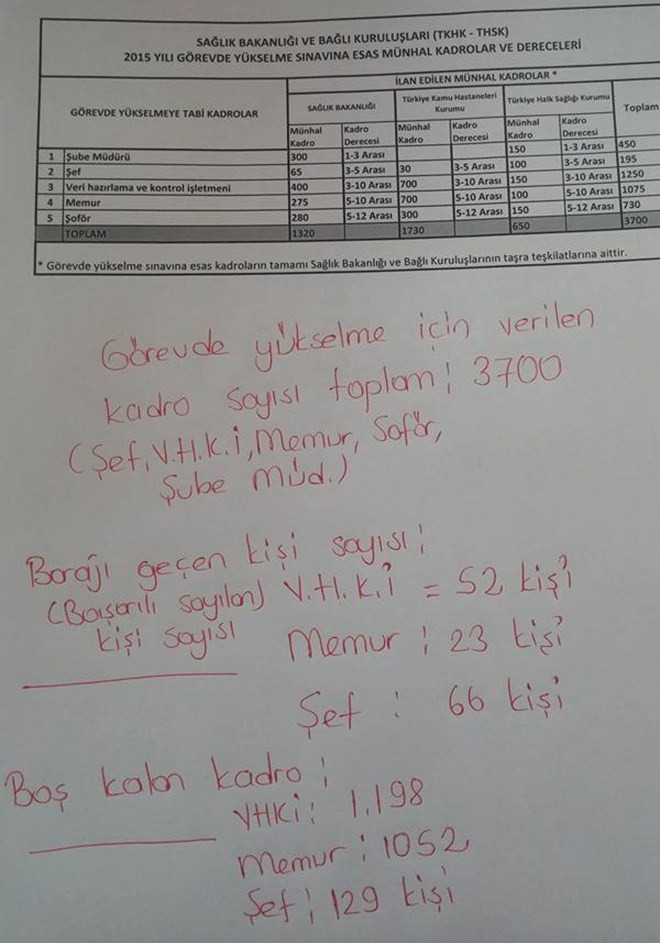 SAĞLIK BAKANLIĞI VE BAĞLI KURULUŞLARI (TKHK - THSK)
2015 YILI GÖREVDE YÜKSELME SINAVINA ESAS MÜNHAL KADROLAR VE DERECELERİ
GÖREVDE YÜKSELMEYE TABİ KADROLAR
İLAN EDİLEN MÜNHAL KADROLAR *
SAĞLIK BAKANLIĞI Türkiye Kamu Hastaneleri Kurumu Türkiye Halk Sağlığı Kurumu Toplam
Münhal Kadro Kadro Derecesi Münhal Kadro Kadro Derecesi Münhal Kadro Kadro Derecesi
1 Şube Müdürü 300 1-3 Arası 150 1-3 Arası 450
2 Şef 65 3-5 Arası 30 3-5 Arası 100 3-5 Arası 195
3 Veri hazırlama ve kontrol işletmeni 400 3-10 Arası 700 3-10 Arası 150 3-10 Arası 1250
4 Memur 275 5-10 Arası 700 5-10 Arası 100 5-10 Arası 1075
5 Şoför 280 5-12 Arası 300 5-12 Arası 150 5-12 Arası 730
TOPLAM 1320 1730 650 3700
* Görevde yükselme sınavına esas kadroların tamamı Sağlık Bakanlığı ve Bağlı Kuruluşlarının taşra teşkilatlarına aittir.
Görevde yükselme için verilen
kadro sayısı toplam: 3700
(Şef, V.H.K.İ, Memur, Şoför,
Şube Müd.)
Barajı geçen kişi sayısı:
(Başarılı sayılan) V.H.K.İ = 52 kişi
kişi sayısı Memur : 23 kişi
Şef : 66 kişi
Boş kalan kadro :
VHKİ : 1.198
Memur : 1052
Şef : 129 kişi